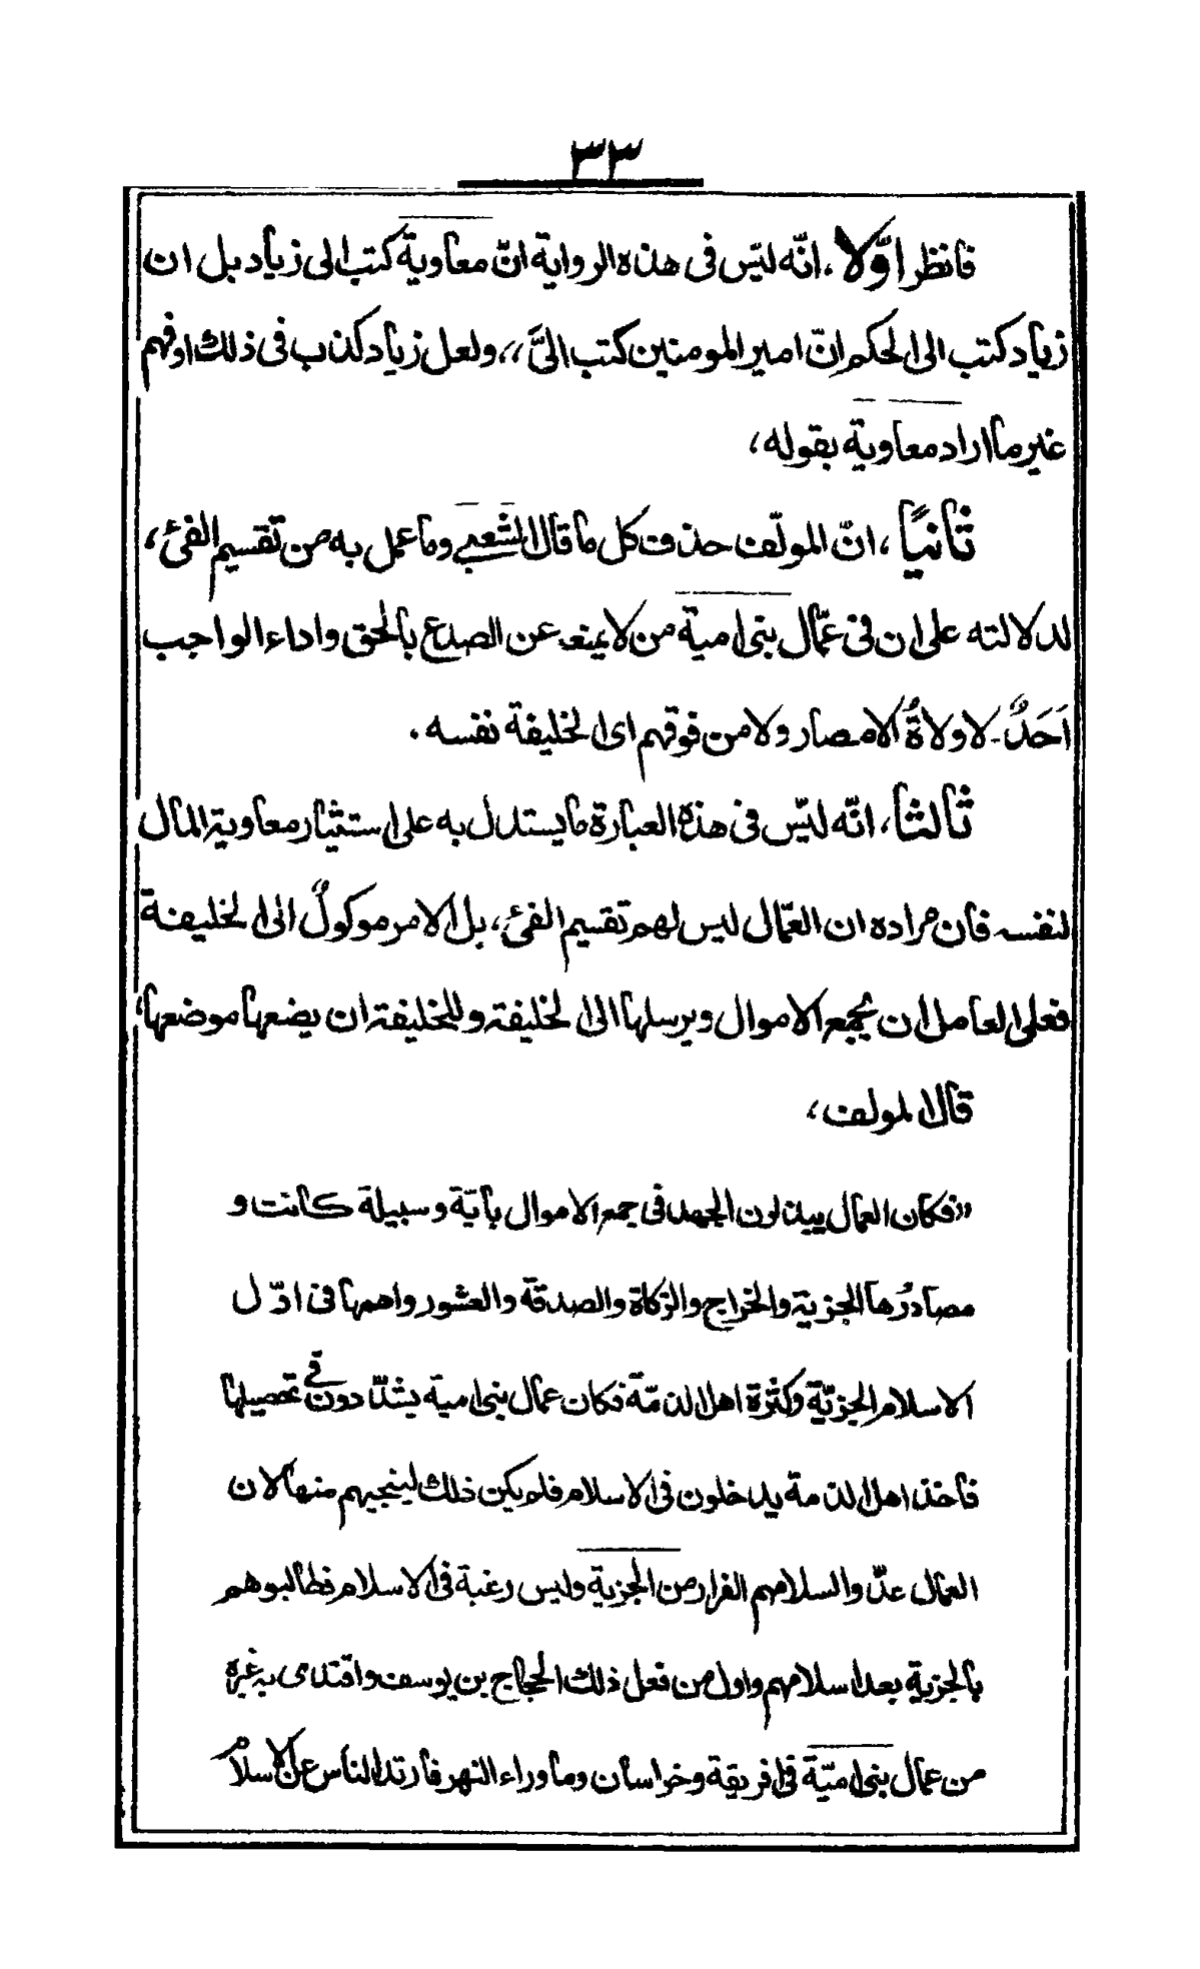 ٣٣
فانظر اوّلا، انّه ليس فى هذه الرواية انّ معاوية كتب الى زياد بل ان
زياد كتب الى الحكم انّ امير المومنين كتب الىَّ،، ولعل زياد كذب فى ذلك او فهم
غير ما اراد معاوية بقوله،
ثانياً، انّ المولّف حذف كل ما قال الشعبى وما عمل به من تقسيم الفئ،
لدلالته على ان فى عمّال بنى امية من لا يمنعه عن الصدع بالحق واداء الواجب
اَحَدٌ۔ لا ولاةُ الامصار ولا من فوقهم اى الخليفة نفسه.
ثالثا، انّه ليس فى هذه العبارة ما يستدل به على استيثار معاوية المال
لنفسه فان مراده ان العمّال ليس لهم تقسيم الفئ، بل الامر موكولٌ الى الخليفة
فعلى العامل ان يجمع الاموال ويرسلها الى الخليفة وللخليفة ان يضعها موضعها،
قال المولف،
"فكان العمال يبذلون الجهد فى جمع الاموال باية وسيلة كانت و
مصادرُها الجزية والخراج والزكاة والصدقة والعشور واهمها فى اوّل
الاسلام الجزيّة وكثرة اهل الذمّة فكان عمال بنى امية يشدّدون فى تحصيلها
فاخذ اهل الذمة يدخلون فى الاسلام فلم يكن ذلك لينجيهم منها لان
العمال عدّوا اسلامهم الفرار من الجزية وليس رغبة فى الاسلام فطالبوهم
بالجزية بعد اسلامهم واول من فعل ذلك الحجاج بن يوسف واقتدى به غيره
من عمال بنى اميّة فى افريقة وخراسان وما وراء النهر فارتد الناس عن الاسلام